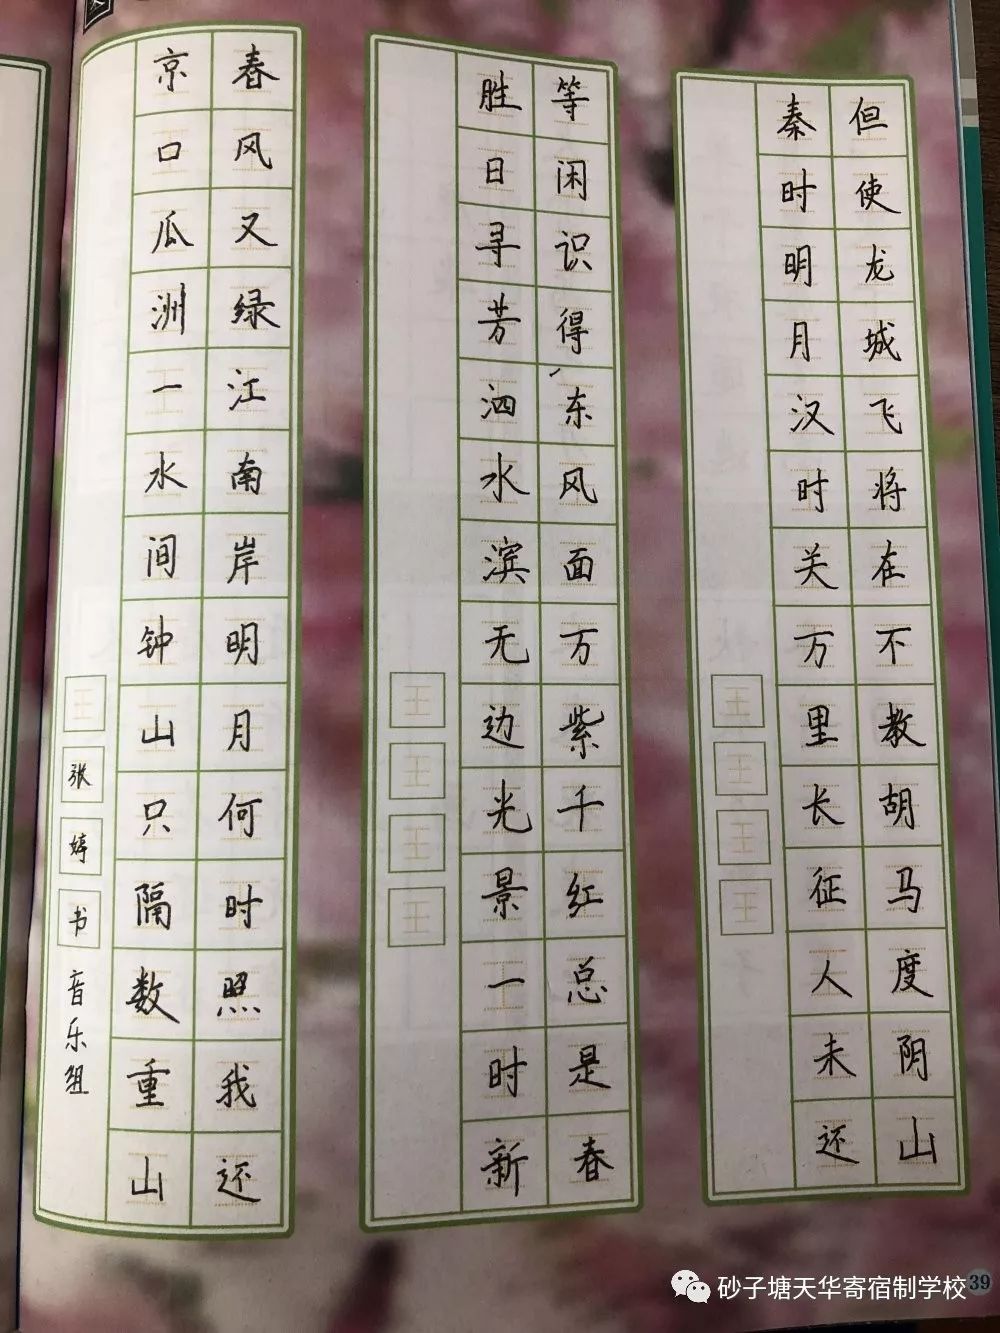 京口瓜洲一水间钟山只隔数重山
春风又绿江南岸明月何时照我还
张婷书 音乐组
胜日寻芳泗水滨无边光景一时新
等闲识得东风面万紫千红总是春
秦时明月汉时关万里长征人未还
但使龙城飞将在不教胡马度阴山
39
砂子塘天华寄宿制学校